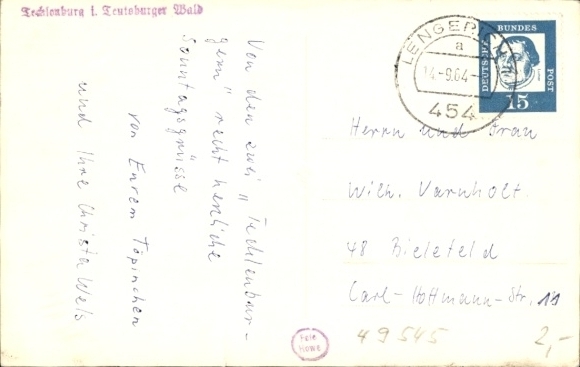 Tecklenburg i. Teutoburger Wald
Von den zwei "Tecklenbur-
gern" recht herzliche
Sonntagsgrüsse
von Eurem Töpinchen
und Ihre Christa Wels
LENGERICH
a
14.-9.64-
454
DEUTSCHE BUNDESPOST
15
Herrn und Frau
Wilh. Varnholt.
48 Bielefeld
Carl-Hoffmann-Str. 11
49545
2,-
Foto
HOWE